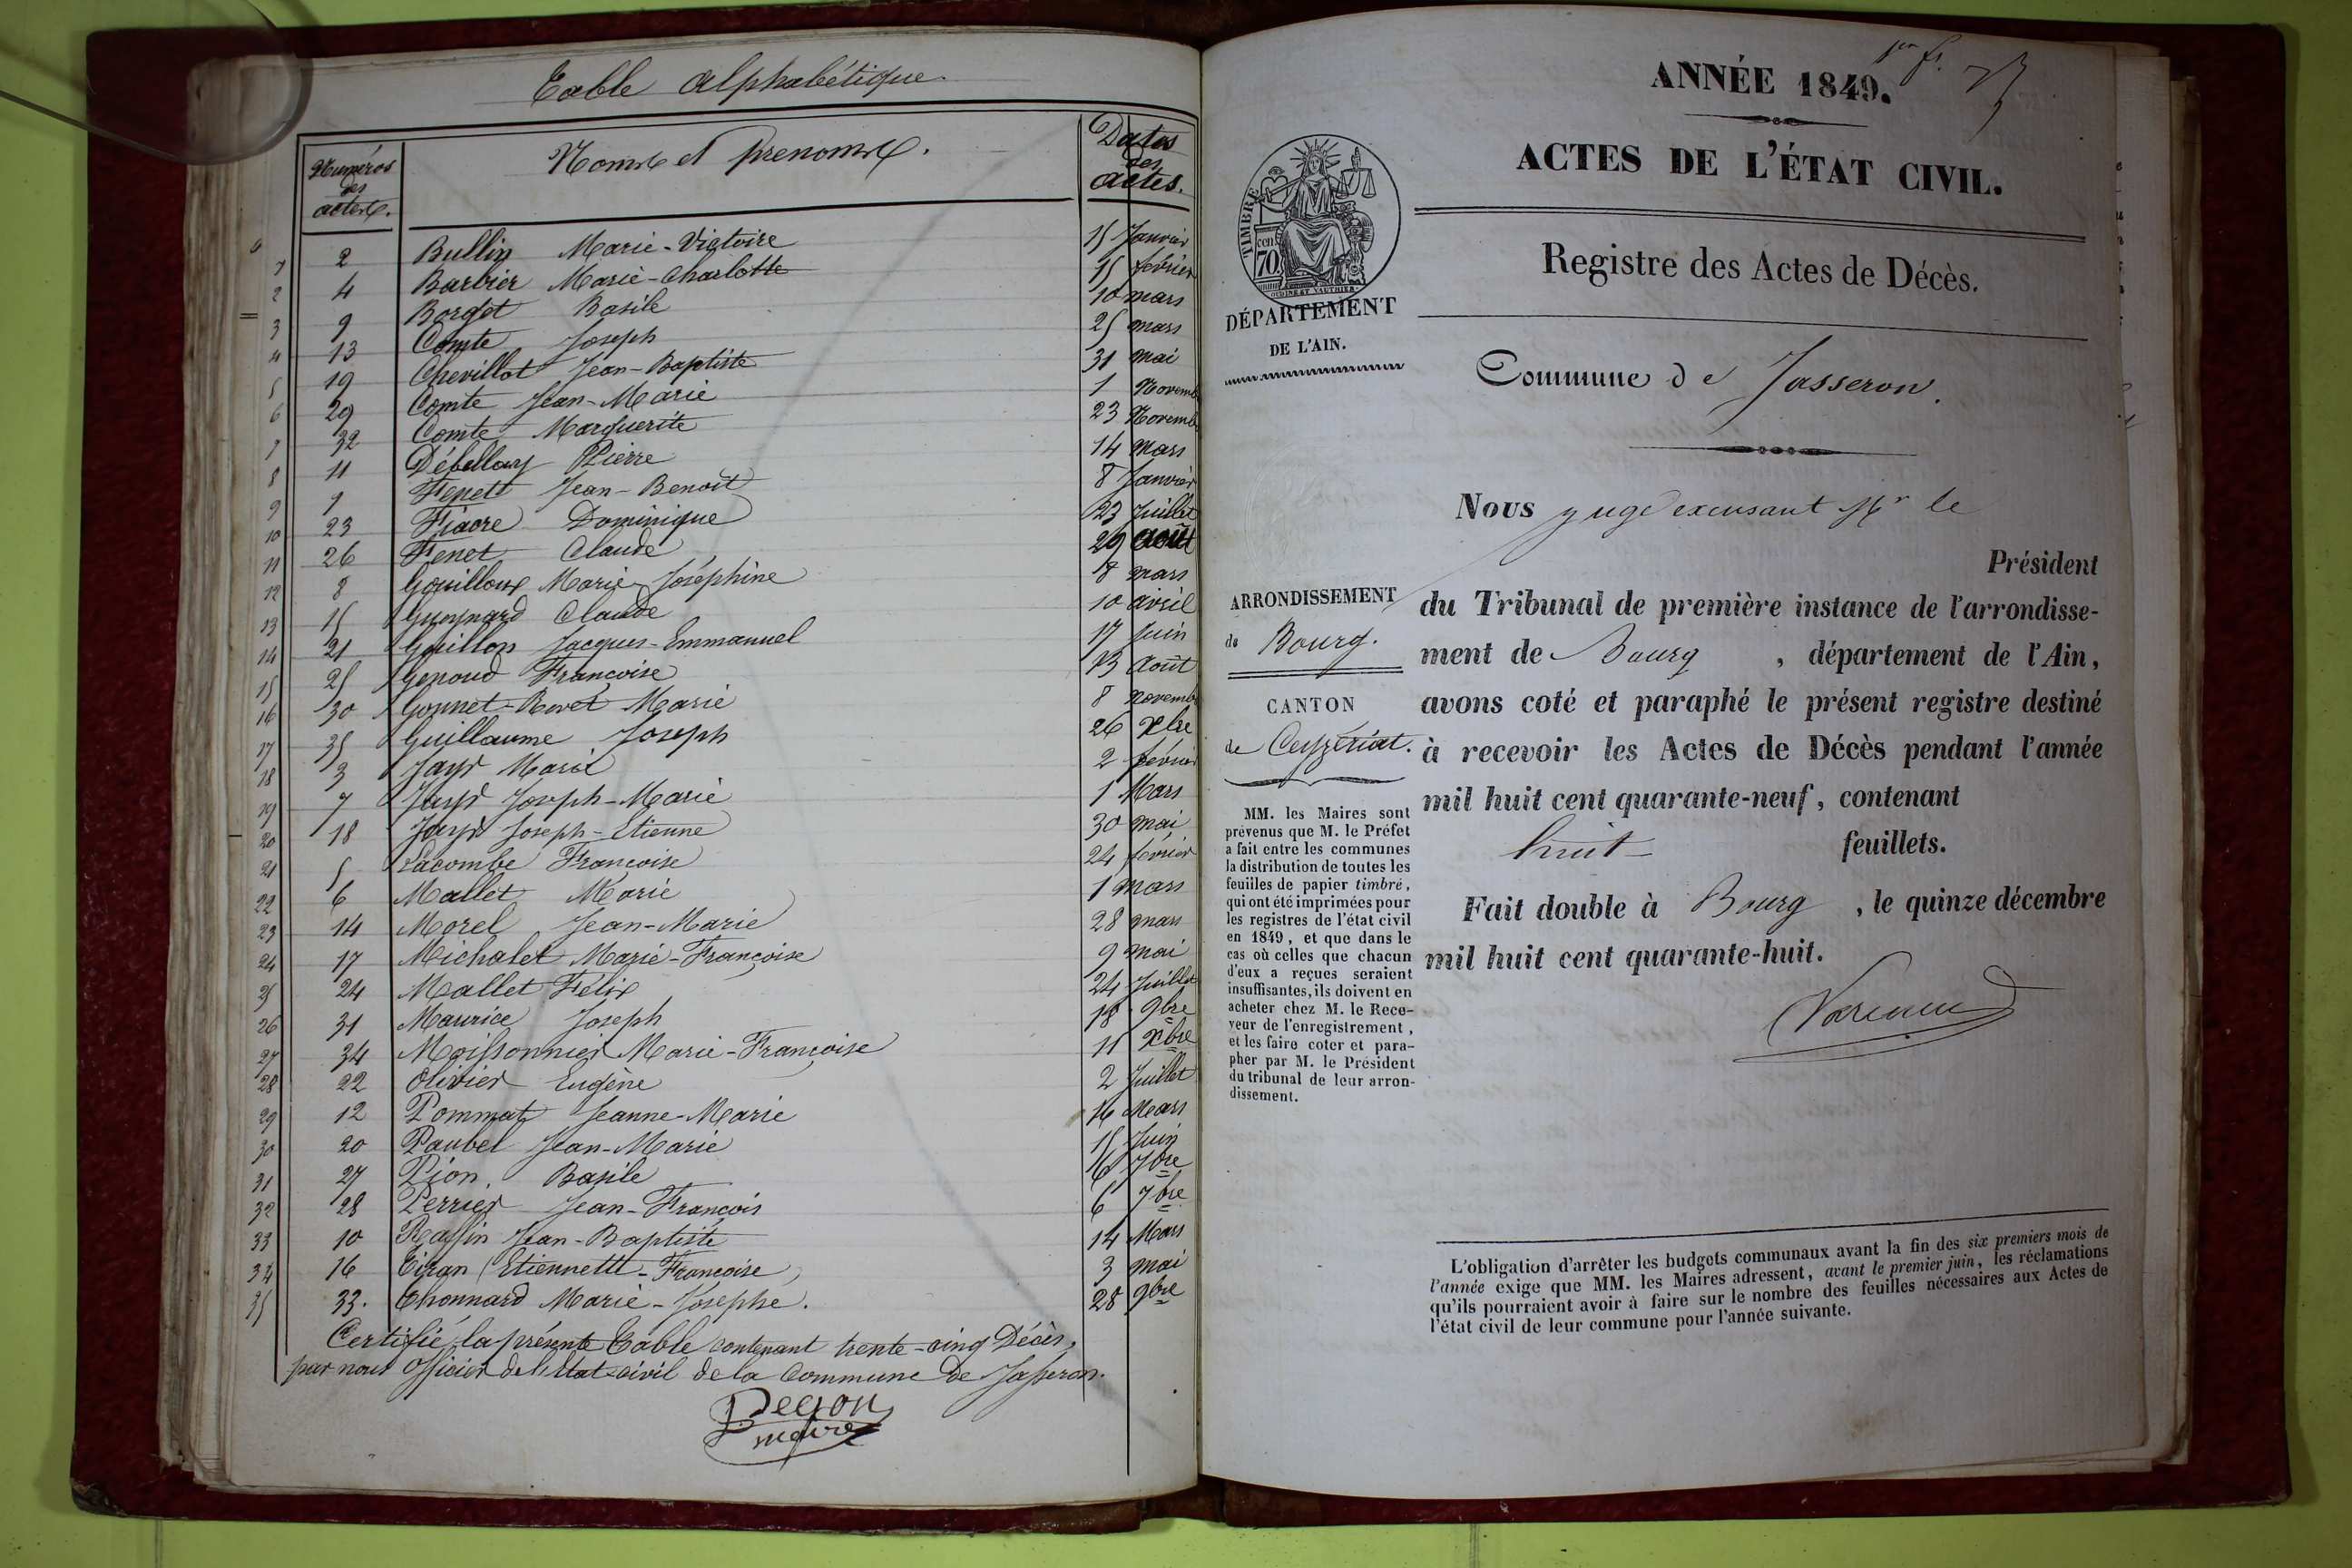 Table Alphabétique.
Numéros des actes. Noms et prénoms. Dates des actes.
1 2 Bullin Marie-Victoire 15 Janvier
2 4 Barbier Marie-Charlotte 15 février
3 9 Borget Basile 10 mars
4 13 Comte Joseph 25 mars
5 19 Chevillot Jean-Baptiste 31 mai
6 29 Comte Jean-Marie 1 Novemb
7 32 Comte Marguerite 23 Novemb
8 11 Débellay Pierre 14 mars
9 1 Fenet Jean-Benoit 8 Janvier
10 23 Fiacre Dominique 23 Juillet
11 26 Fenet Claude 29 août
12 8 Gouilloux Marie Joséphine 8 mars
13 15 Gueynard Claude 10 avril
14 21 Guillon Jacques-Emmanuel 17 Juin
15 25 Genoud Françoise 13 Août
16 30 Gonnet-Bovet Marie 8 novemb
17 35 Guillaume Joseph 26 Xbre
18 3 Jayr Marie 2 février
19 7 Jayr Joseph-Marie 1 Mars
20 18 Jayr Joseph-Etienne 30 mai
21 5 Lacombe Françoise 24 février
22 6 Mallet Marie 1 mars
23 14 Morel Jean-Marie 28 mars
24 17 Michalet Marie-Françoise 9 mai
25 24 Mallet Félix 24 Juillet
26 31 Maurice Joseph 18 9bre
27 34 Moissonnier Marie-Françoise 11 Xbre
28 22 Olivier Eugène 2 Juillet
29 12 Pommat Jeanne-Marie 16 Mars
30 20 Paubel Jean-Marie 15 Juin
31 27 Pion Basile 6 7bre
32 28 Perrier Jean-François 6 7bre
33 10 Raffin Jean-Baptiste 14 Mars
34 16 Tiran Etiennette-Françoise 3 mai
35 33. Thonnard Marie-Josephe. 28 9bre
Certifié la présente Table contenant trente-cinq Décès,
par nous Officier de l'Etat-civil de la Commune de Jasseron.
maire
1er ft.
ANNÉE 1849.
ACTES DE L'ÉTAT CIVIL.
Registre des Actes de Décès.
TIMBRE
cen.
70
DÉPARTEMENT
DE L'AIN.
Commune de Jasseron.
Nous juge excusant Mr le
Président
du Tribunal de première instance de l'arrondisse-
ment de Bourg, département de l'Ain,
avons coté et paraphé le présent registre destiné
à recevoir les Actes de Décès pendant l'année
mil huit cent quarante-neuf, contenant
huit feuillets.
Fait double à Bourg, le quinze décembre
mil huit cent quarante-huit.
ARRONDISSEMENT
de Bourg.
CANTON
de Ceyzériat.
MM. les Maires sont
prévenus que M. le Préfet
a fait entre les communes
la distribution de toutes les
feuilles de papier timbré,
qui ont été imprimées pour
les registres de l'état civil
en 1849, et que dans le
cas où celles que chacun
d'eux a reçues seraient
insuffisantes, ils doivent en
acheter chez M. le Rece-
veur de l'enregistrement,
et les faire coter et para-
pher par M. le Président
du tribunal de leur arron-
dissement.
L'obligation d'arrêter les budgets communaux avant la fin des six premiers mois de
l'année exige que MM. les Maires adressent, avant le premier juin, les réclamations
qu'ils pourraient avoir à faire sur le nombre des feuilles nécessaires aux Actes de
l'état civil de leur commune pour l'année suivante.